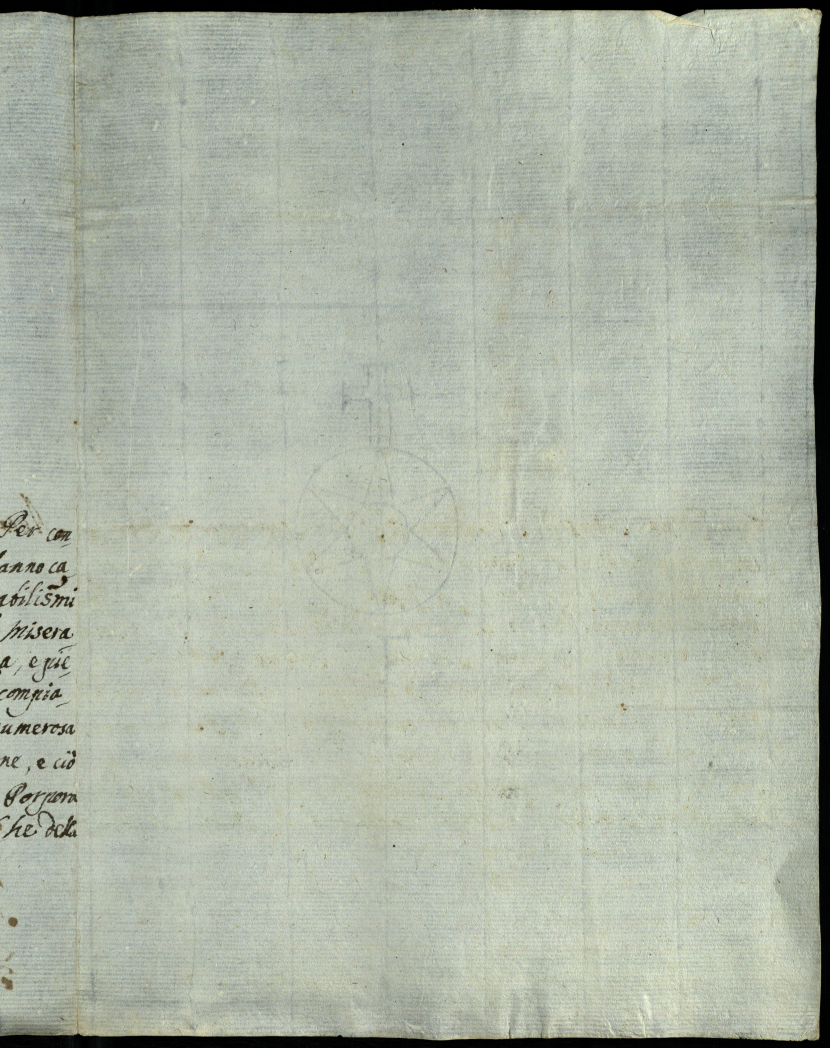 Per con_
anno ca_
abilismi
misera
a, e pie_
compia_
umerosa
ne, e ciò
Porpora
he della